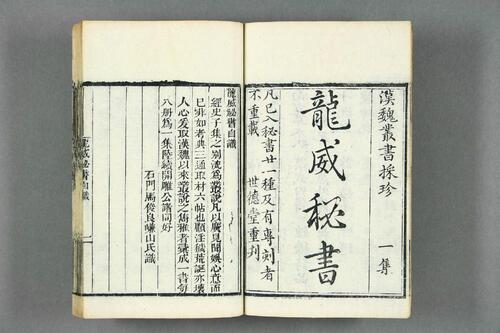 漢魏叢書採珍
一集
龍威秘書
凡已入秘書廿一種及有專刻者
不重載
世德堂重刋
龍威秘書自識
經史子集之別流爲叢說凡以廣見聞娛心意而
巳非如者典三通取材六帖也顧淫穢荒誕亦壞
人心爰取漢魏以來叢說之雋雅者彚成一書每
八册爲一集陸續開雕公諸同好
石門馬俊良嵰山氏識
龍威秘書自識